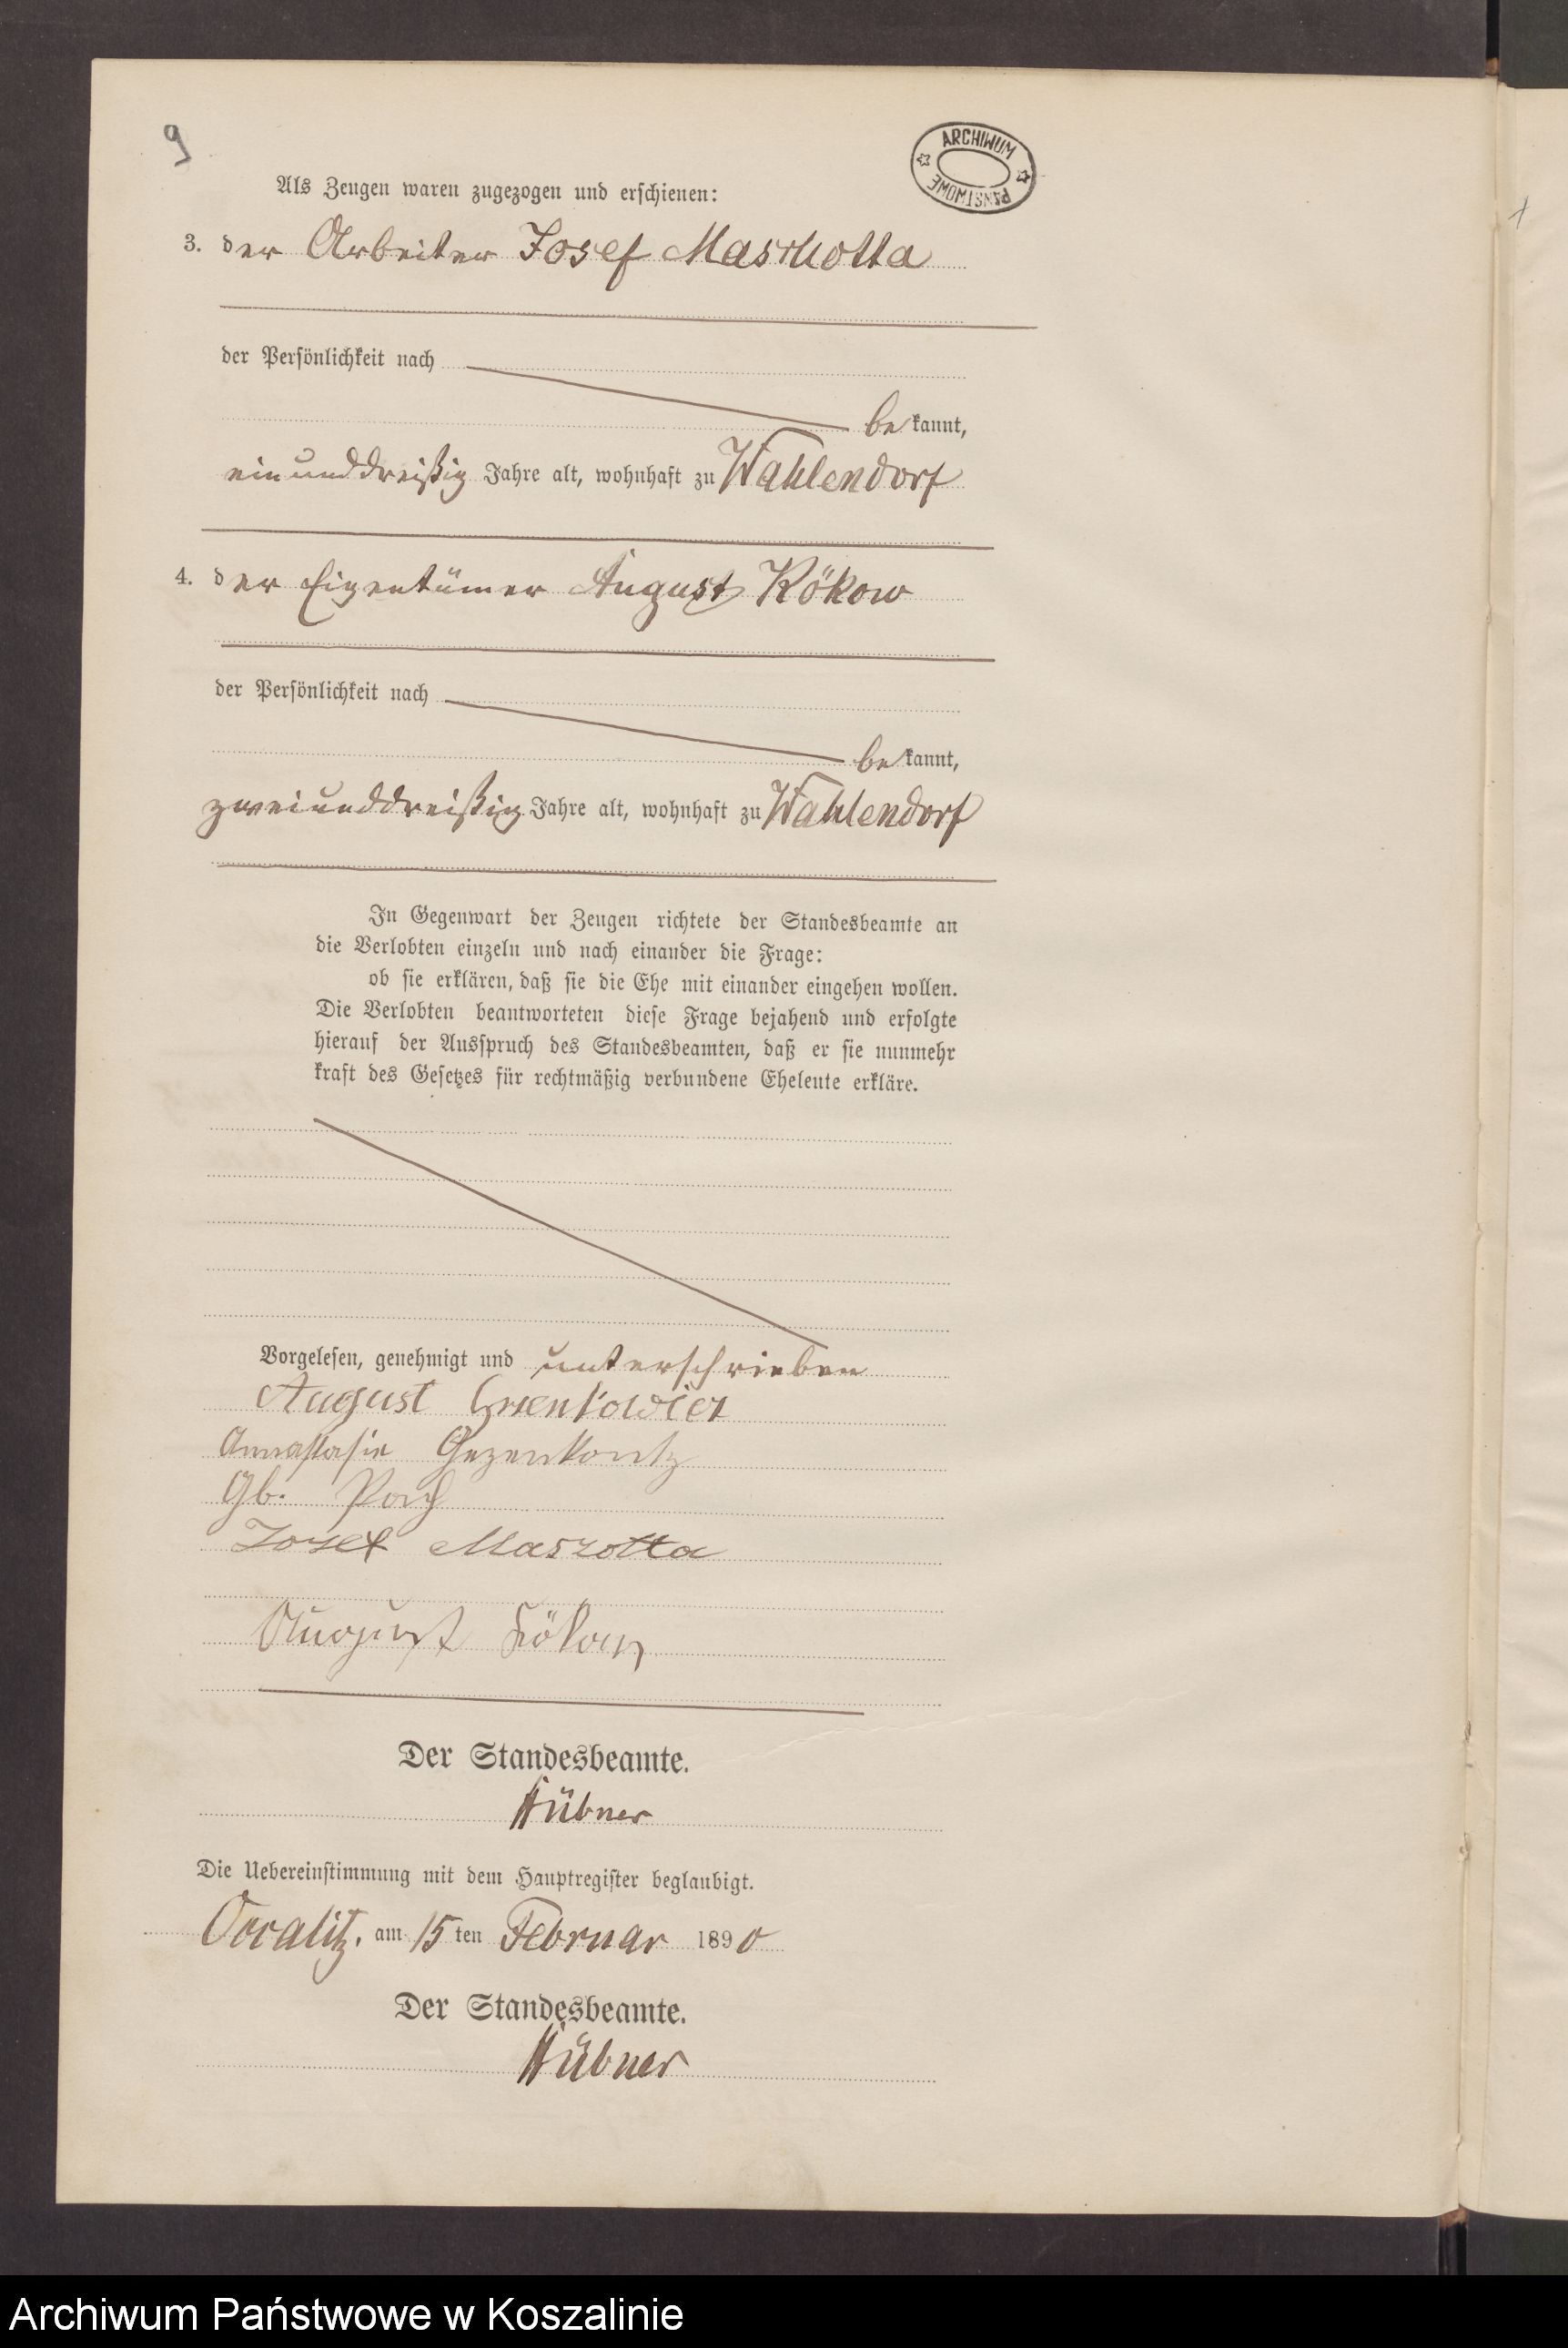 9
ARCHIWUM
PAŃSTWOWE
Als Zeugen waren zugezogen und erschienen:
3. der Arbeiter Josef Maschotta
der Persönlichkeit nach
bekannt,
einunddreißig Jahre alt, wohnhaft zu Wahlendorf
4. der Eigentümer August Kökow
der Persönlichkeit nach
bekannt,
zweiunddreißig Jahre alt, wohnhaft zu Wahlendorf
In Gegenwart der Zeugen richtete der Standesbeamte an
die Verlobten einzeln und nach einander die Frage:
ob sie erklären, daß sie die Ehe mit einander eingehen wollen.
Die Verlobten beantworteten diese Frage bejahend und erfolgte
hierauf der Ausspruch des Standesbeamten, daß er sie nunmehr
kraft des Gesetzes für rechtmäßig verbundene Eheleute erkläre.
Vorgelesen, genehmigt und unterschrieben
August
Annastasie
Gb.
Josef Maszotta
August Kökow
Der Standesbeamte.
Hübner
Die Uebereinstimmung mit dem Hauptregister beglaubigt.
am 15ten Februar 1890
Der Standesbeamte.
Hübner
Archiwum Państwowe w Koszalinie